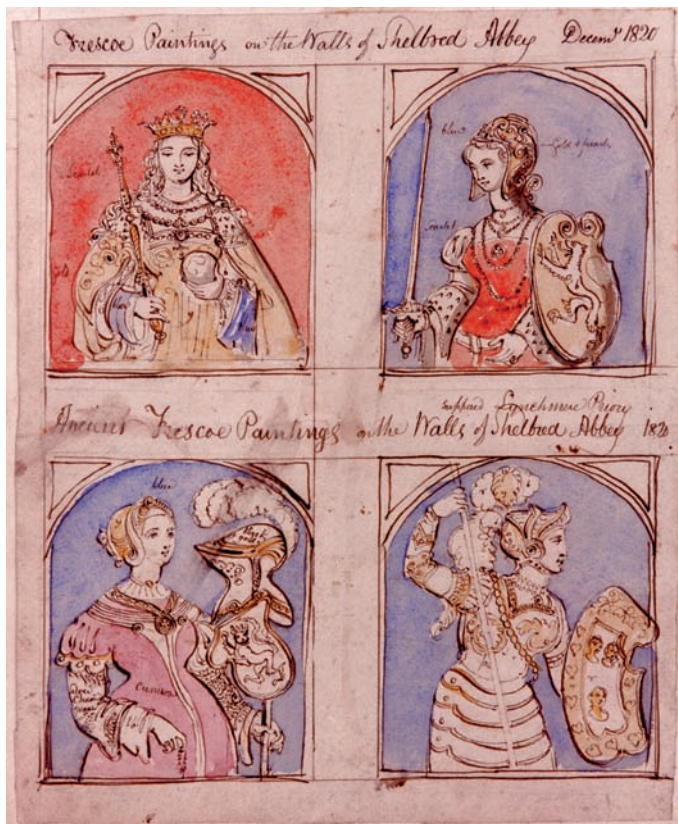 Frescoe Paintings on the Walls of Shelbred Abbey Decemr 1820
Scarlet
blue
Gold & pearls
Scarlet
supposed Lynchmere Priory
Ancient Frescoe Paintings on the Walls of Shelbred Abbey 182
blue
Crimson